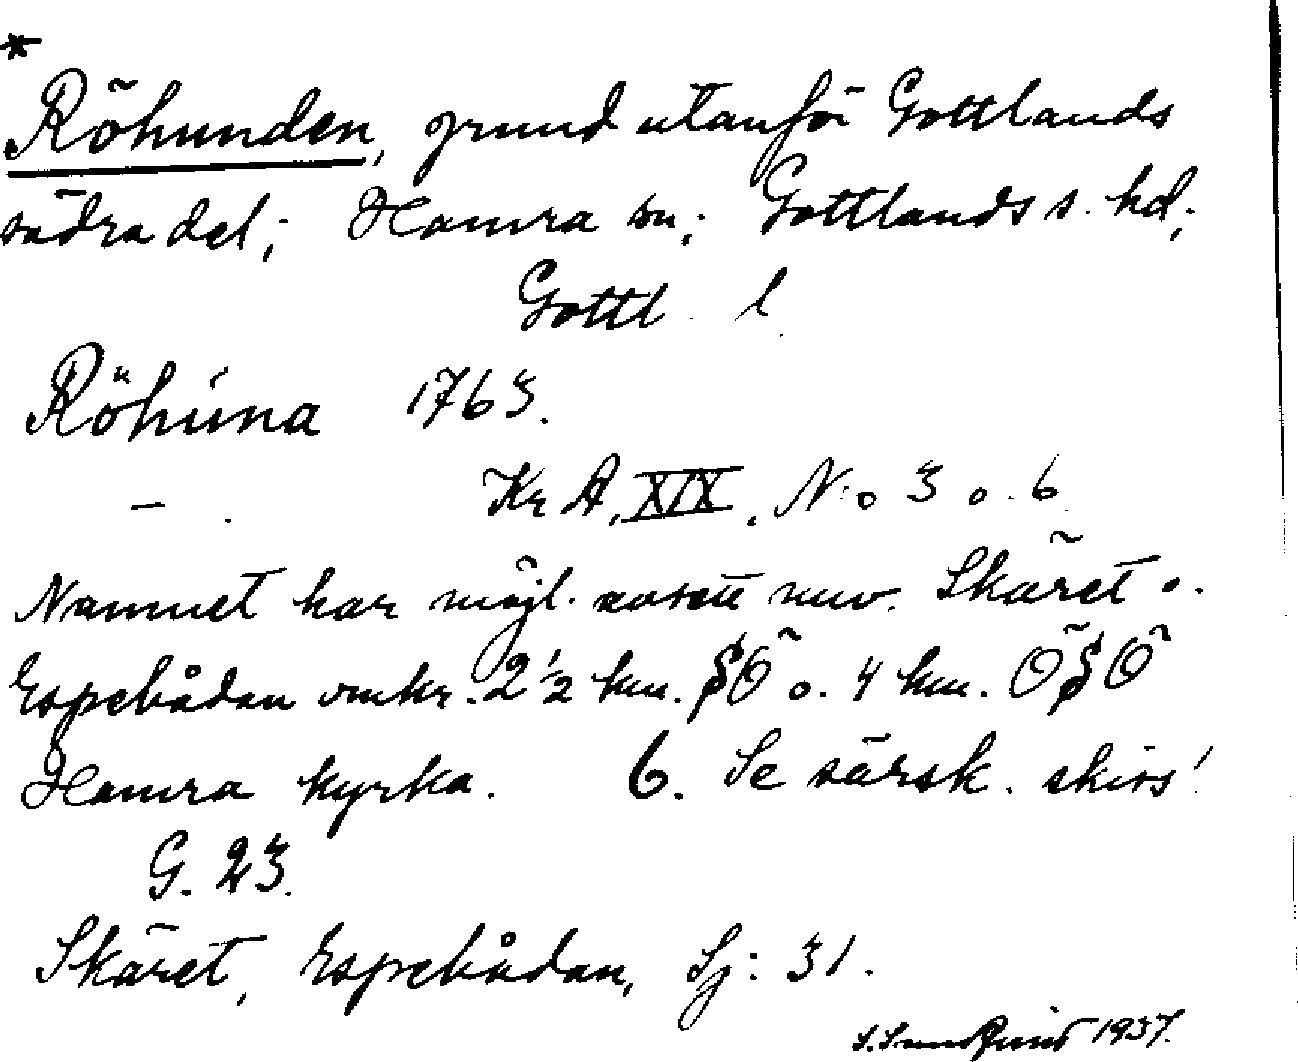 *
Röhunden, grund utanför Gottlands
södra del; Hamra sn; Gottlands s. hd;
Gottl. l.
Röhúna 1763.
— . Kr A, XIX, N:o 3 o. 6
Namnet har möjl. avsett nuv. Skäret o.
Espebådan omkr. 2 1/2 km. SÖ o. 4 km. ÖSÖ
Hamra kyrka. 6. Se särsk. skiss!
G. 23.
Skäret, Espebådan, Sj: 31.
1937.